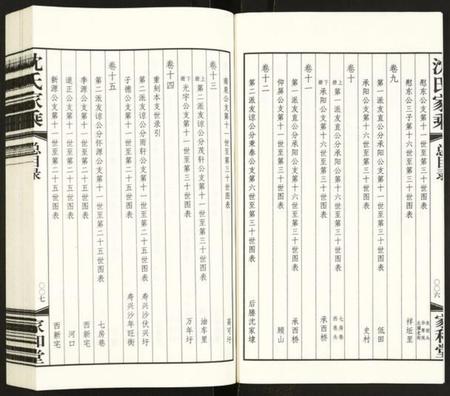 沈氏家乘 总目录 〇〇六 家和堂
慰东公支第十一世至第三十世图表
慰东公三子第十六世至第三十世图表 祥垣里
卷九
第二派友直公分承阳公支第十一世至第三十世图表 低田
承阳公支第十六世至第三十世图表 史村
卷十
承阳公支第十一世至第三十世图表
卷十一
第一派友直公分承阳公第十一世至第三十世图表 承西桥
仰屏公支第十一世至第三十世图表 顾山
卷十二
第二派友谅公分秉春公支第六世至第三十世图表 后塍沈家埭
卷十三
第二派友谅公分茂轩公支第十一世至第三十世图表 油车里
光宇公支第十一世至第三十世图表 万年圩
卷十四
重刻本支世表引
第二派友谅公分雨轩公支第十一世至第二十五世图表 寿兴沙伏兴圩
子德公支第十一世至第二十五世图表 寿兴沙年旺街
卷十五
第二派友谅公分怀源公支第十一世至第二十五世图表 七房巷
李源公支第十一世至第二十五世图表 西新宅
道正公支第十一世至第三十世图表 河口
新源公支第十一世至第二十五世图表 西新宅
沈氏家乘 总目录 〇〇七 家和堂